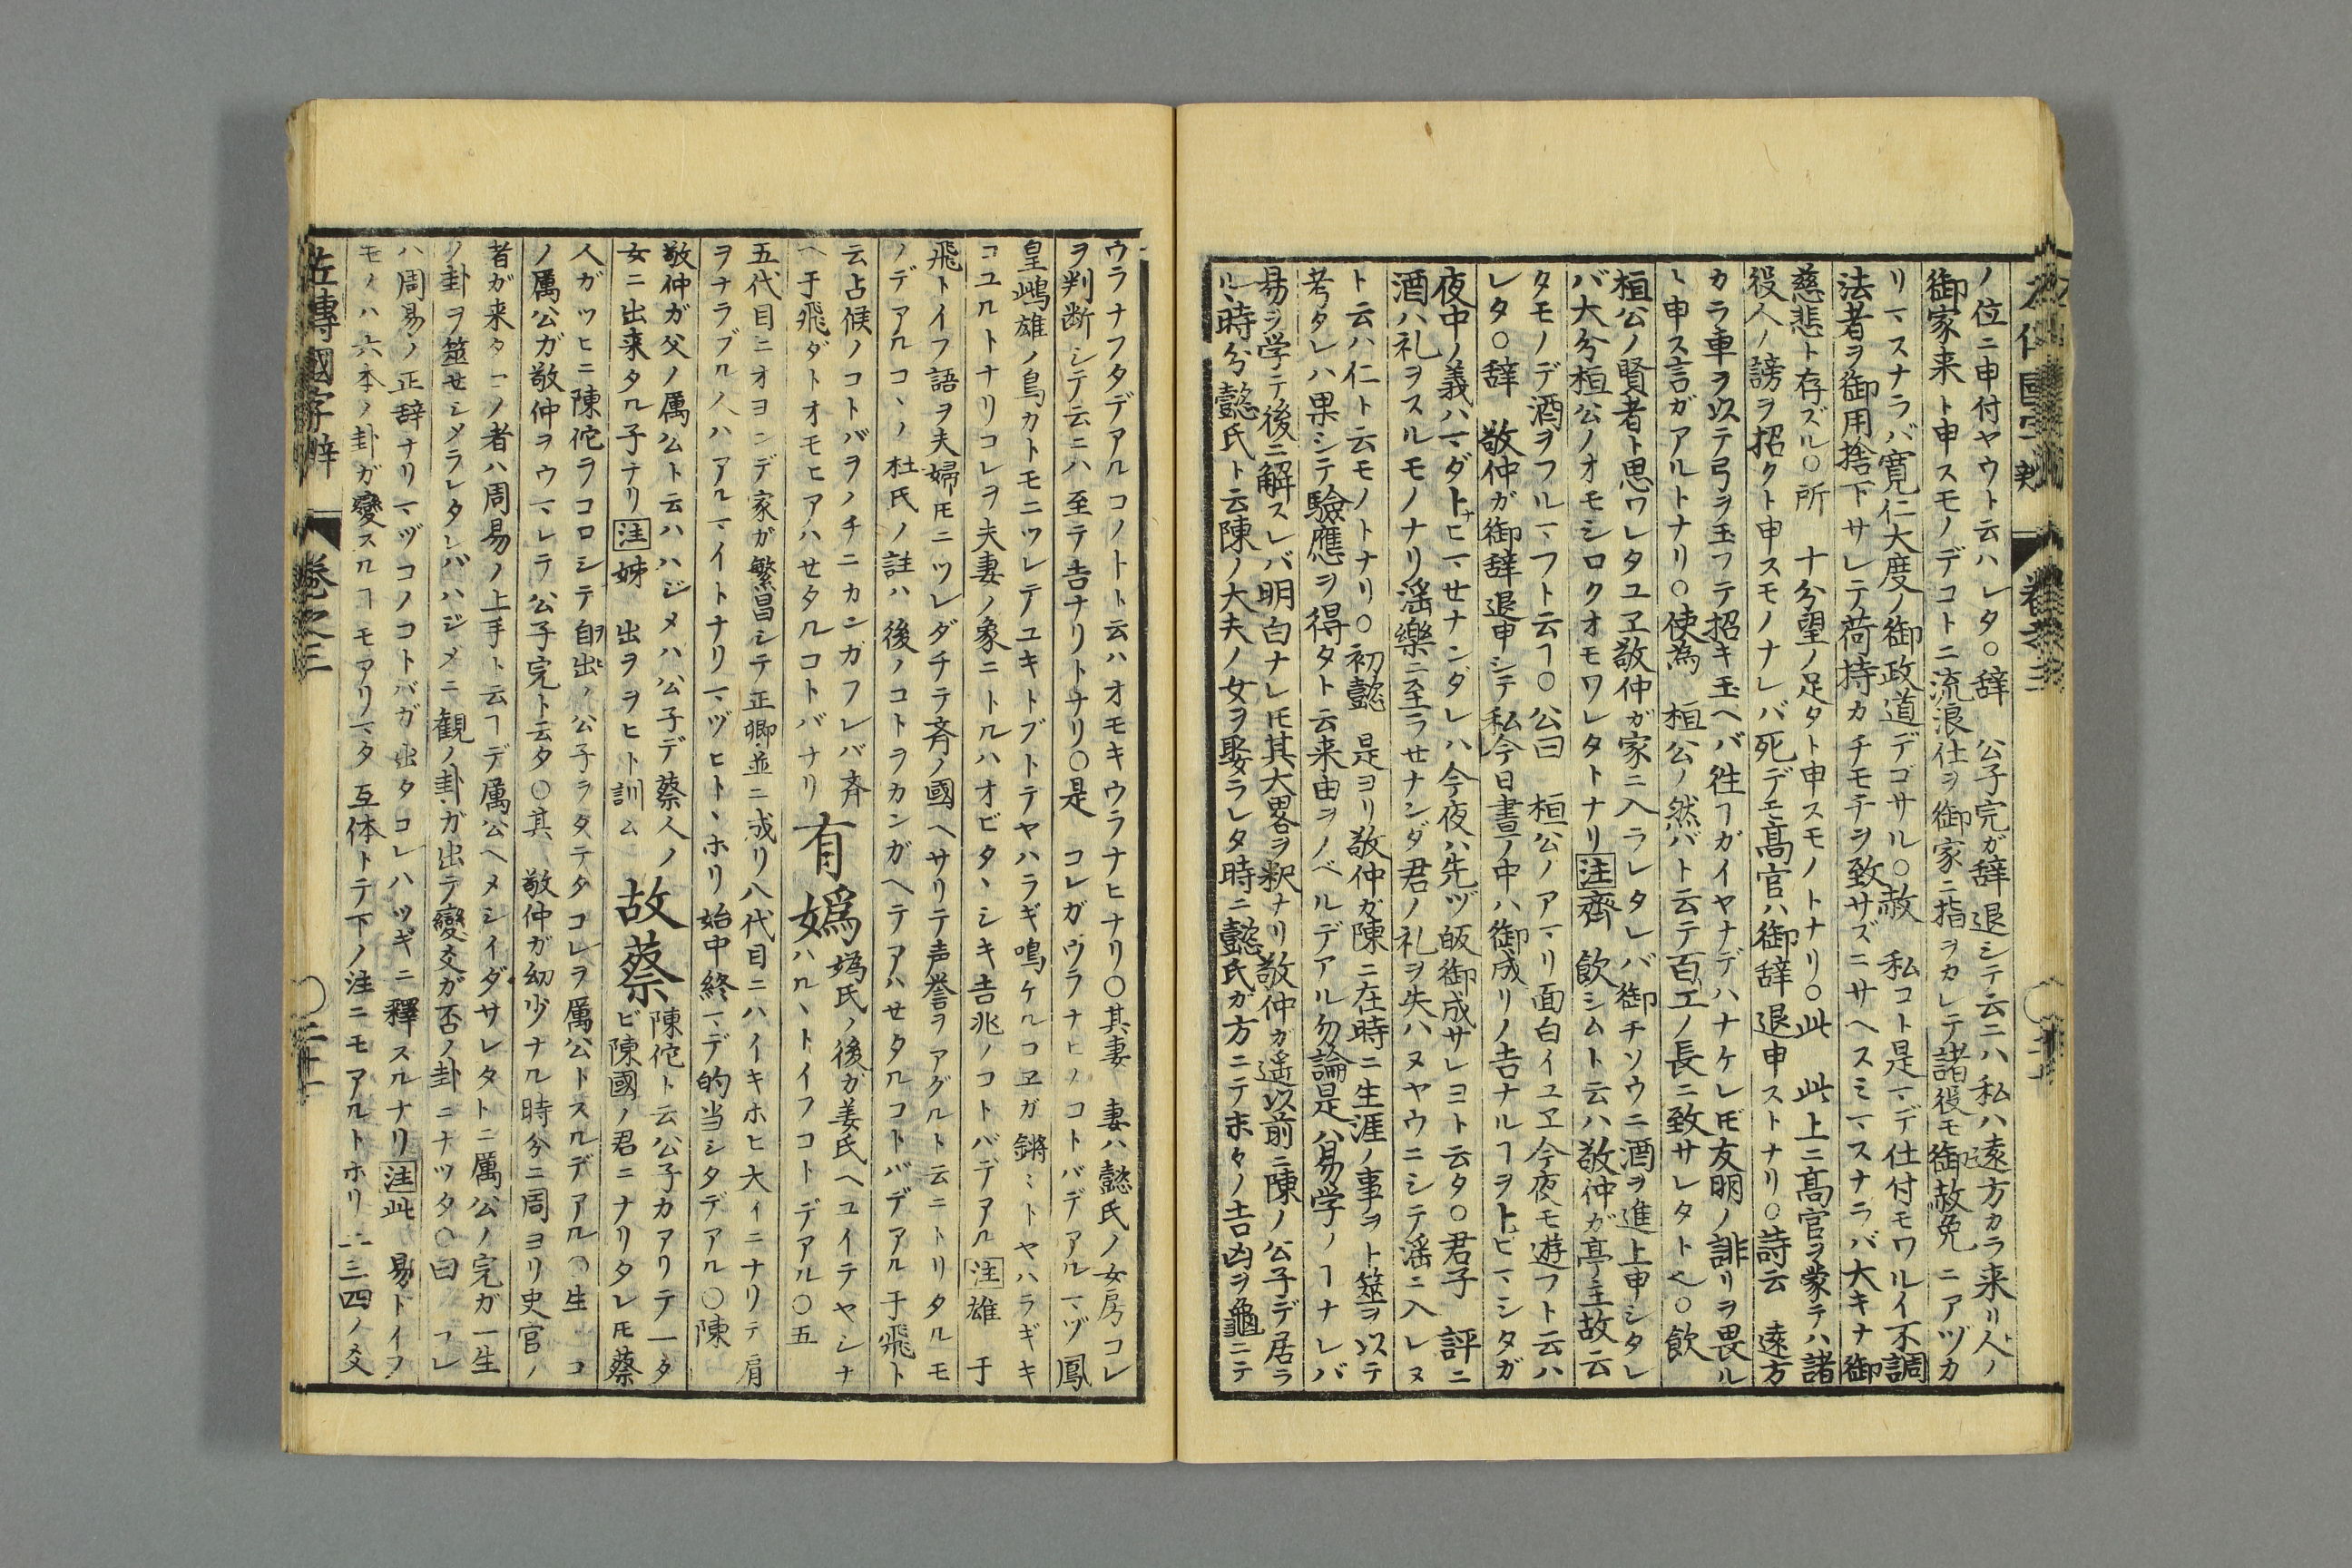 ノ位ニ申付ヤウト云ハレタ○辞 公子完ガ辞退シテ云ニハ私ハ遠方カラ来リ人ノ
御家来ト申スモノデコトニ流浪仕ヲ御家ニ指ヲカレテ諸役モ御赦免 ニアヅカ
リマスナラバ寛仁大度ノ御政道デゴサル○赦 私コト是マデ仕付モワルイ不調
法者ヲ御用捨下サレテ荷持カチモ乎ヲ致サズニサヘスミマスナラバ大キナ御
慈悲ト存ズル○所 十分望ノ足タト申スモノトナリ○此 此上ニ髙官ヲ蒙テハ諸
役人ノ謗ヲ招クト申スモノナレバ死デモ髙官ハ御辞退申ストナリ○詩云 遠方
カラ車ヲ以テ弓ヲ玉フテ招キ玉ヘバ徃ヿガイヤナデハナケレ𪜈友明ノ誹リヲ畏ル
ヽ申ス言ガアルトナリ○使為 桓公ノ然バト云テ百工ノ長ニ致サレタト也○飲
桓公ノ賢者ト思ワレタユヱ敬仲ガ家ニ入ラレタレバ御チソウニ酒ヲ進上申シタレ
バ大分桓公ノオモシロクオモワレタトナリ注齊 飲シムト云ハ敬仲ガ亭主故云
タモノデ酒ヲフルマフト云ヿ○公曰 桓公ノアマリ面白イユヱ今夜モ遊フト云ハ
レタ○辞 敬仲ガ御辞退申シテ私今日晝ノ中ハ御成リノ吉ナルヿヲトビマシタガ
夜中ノ義ハマダトヒマセナンダレハ今夜ハ先ヅ皈御成サレヨト云タ○君子 評ニ
酒ハ礼ヲスルモノナリ滛樂ニ至ラセナンダ君ノ礼ヲ失ハヌヤウニシテ滛ニ入レヌ
ト云ハ仁ト云モノトナリ○初懿 是ヨリ敬仲ガ陳ニ在時ニ生涯ノ事ヲト筮ヲ以テ
考タレハ果シテ驗應ヲ得タト云来由ヲノベルデアル勿論是ハ易学ノヿナレバ
易ヲ学テ後ニ解スレバ明白ナレ𪜈其大畧ヲ釈ナリ敬仲ガ遥以前ニ陳ノ公子デ居ラ
ルヽ時分懿氏ト云陳ノ大夫ノ女ヲ娶ラレタ時ニ懿氏ガ方ニテ末々ノ吉凶ヲ龜ニテ
ウラナフタデアルコノトト云ハオモキウラナヒナリ○其妻 妻ハ懿氏ノ女房コレ
ヲ判断シテ云ニハ至テ吉ナリトナリ○是 コレガウラナヒノコトバデアルマヅ鳳
皇嶋雄ノ鳥カトモニツレテユキトブトテヤハラギ鳴ケルコヱガ鏘ミトヤハラギキ
コユルトナリコレヲ夫妻ノ象ニトルハオビタヽシキ吉兆ノコトバデアル注雄 于
飛トイフ語ヲ夫婦𪜈ニツレダチテ斉ノ國ヘサリテ声誉ヲアグルト云ニトリタルモ
ノデアルコヽノ杜氏ノ註ハ後ノコトヲカンガヘテアハセタルコトバデアル于飛ト
云占候ノコトバヲノチニカンガフレバ斉
ヘ于飛ダトオモヒアハセタルコトバナリ
有嬀 嬀氏ノ後ガ姜氏ヘユイテヤシナ
ハルヽトイフコトデアル○五
五代目ニオヨンデ家ガ繁昌シテ正卿並ニ成リ八代目ニハイキホヒ大イニナリテ肩
ヲナラブル人ハアルマイトナリマヅヒトヽホリ始中終マデ的当シタデアル○陳
敬仲ガ父ノ厲公ト云ハハジメハ公子デ蔡人ノ
女ニ出来タル子ナリ注姊 出ヲヲヒト訓ム
故蔡 陳佗ト云公子カアリテ一タ
ビ陳國ノ君ニナリタレ𪜈蔡
人ガツヒニ陳佗ヲコロシテ自出ノ公子ヲタテタコレヲ厲公トスルデアル○生 コ
ノ厲公ガ敬仲ヲウマレテ公子完ト云タ○其 敬仲ガ幼少ナル時分ニ周ヨリ史官ノ
者ガ来タコノ者ハ周易ノ上手ト云ヿデ厲公ヘメシイダサレタトニ厲公ノ完ガ一生
ノ卦ヲ筮セシメラレタレバハジメニ観ノ卦ガ出テ變爻ガ否ノ卦ニナツタ○曰 コレ
ハ周易ノ正辞ナリマヅコノコトバガ出タコレハツギニ釋スルナリ注此 易トイフ
モノハ六本ノ卦ガ變スルヿモアリマタ互体トテ下ノ注ニモアルトホリ二三四ノ爻
左傳國字辯 卷之三 ○二十一